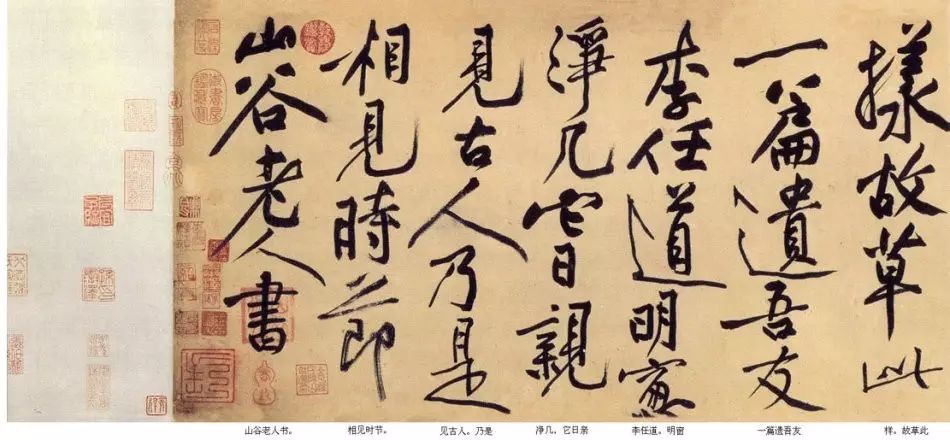 樣故草此
一篇遺吾友
李任道明窗
淨几它日親
見古人乃是
相見時節
山谷老人書
样。故草此
一篇遗吾友
李任道。明窗
净几。它日亲
见古人。乃是
相见时节。
山谷老人书。